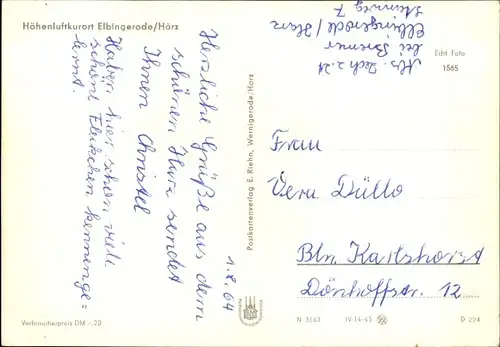 Höhenluftkurort Elbingerode/Harz
1.8.64
Herzliche Grüße aus dem
schönen Harz sendet
Ihnen Christel
Haben hier schon viele
schöne Fleckchen kennenge=
lernt.
Verbraucherpreis DM -.20
Postkartenverlag E. Riehn, Wernigerode/Harz
bei Bremer
Elbingerode/Harz
Steinweg 7
Echt Foto
1565
Frau
Vera Düllo
Bln. Karlshorst
Dönhoffstr. 12
N 3163 IV-14-45 D 224